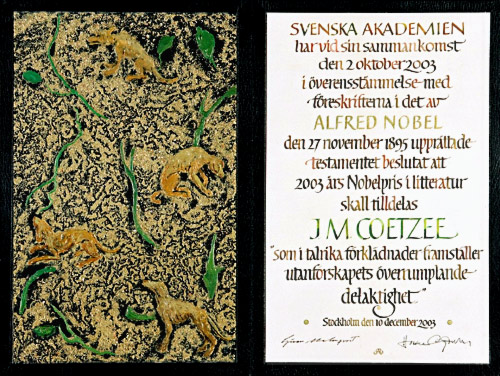 SVENSKA AKADEMIEN
har vid sin sammankomst
den 2 oktober 2003
i överensstämmelse med
föreskrifterna i det av
ALFRED NOBEL
den 27 november 1895 upprättade
testamentet beslutat att
2003 års Nobelpris i litteratur
skall tilldelas
J M COETZEE
"som i talrika förklädnader framställer
utanförskapets överrumplande
delaktighet"
Stockholm den 10 december 2003